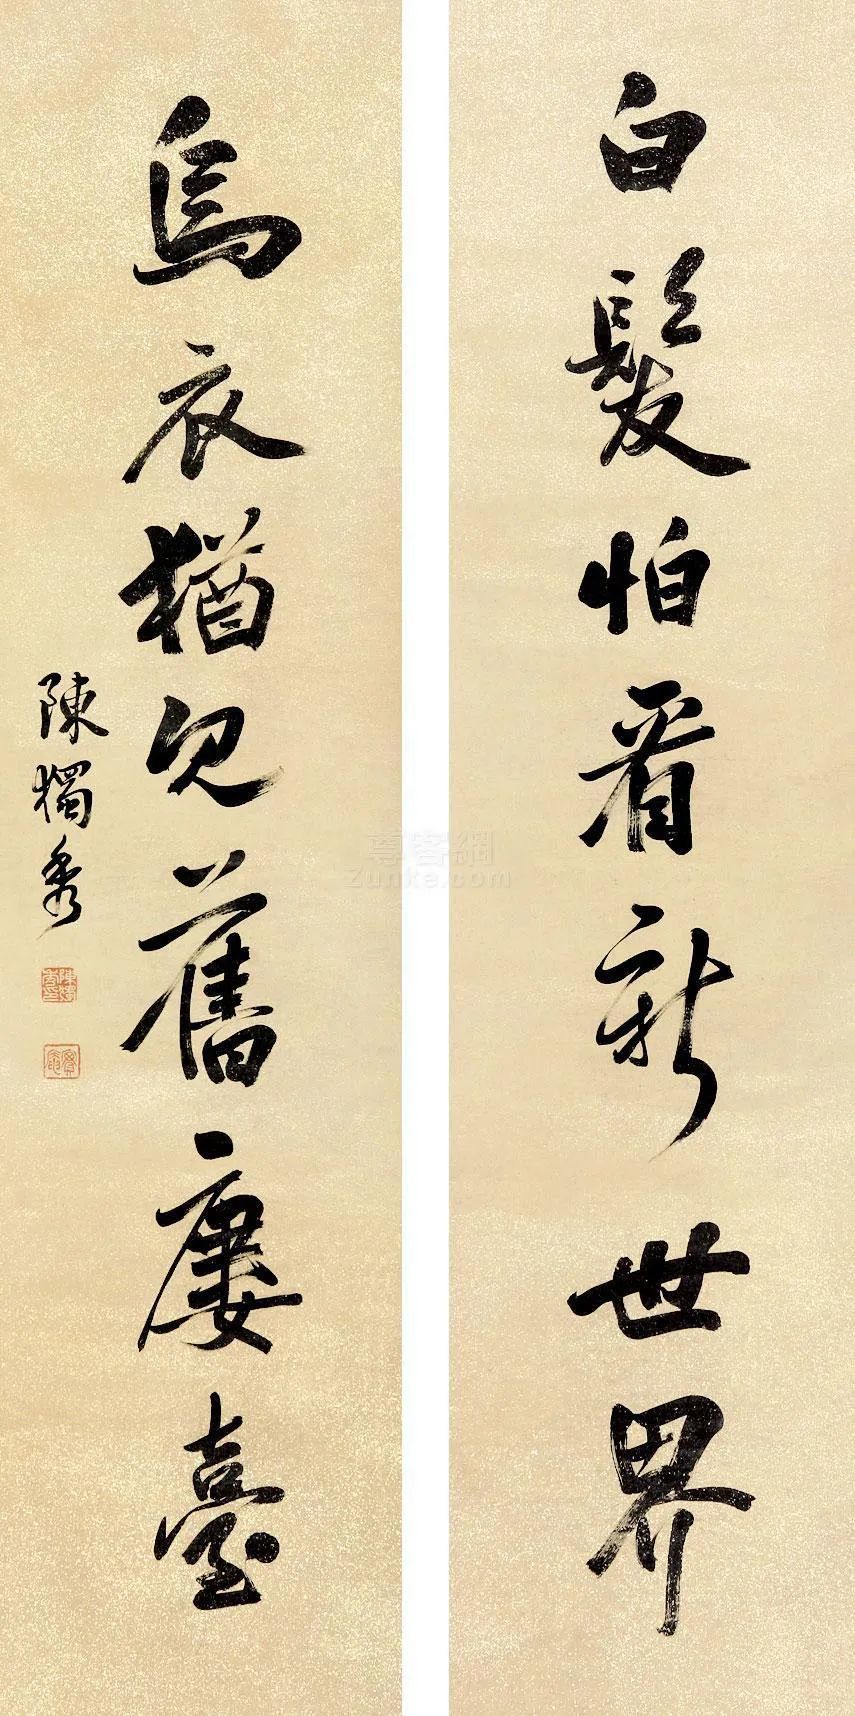 白髮怕看新世界
烏衣猶見舊廔臺
陳獨秀
尊客網
Zunke.com